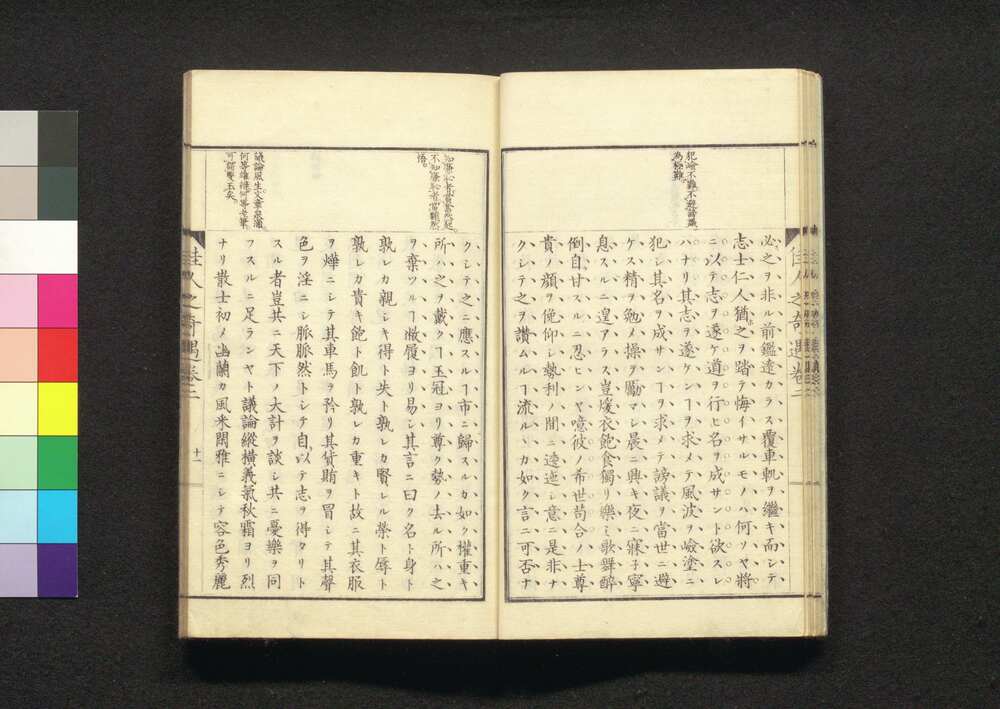 犯險不難不避謗議
為極難
必之ヲ非ル前鑑遠カラス覆車軌ヲ繼キ而シテ
志士仁人猶之ヲ踏テ悔イサルモノハ何ソヤ將
ニ以テ志ヲ遂ケ道ヲ行ヒ名ヲ成サント欲スレ
ハナリ其志ヲ遂ケンヿヲ求メテ風波ヲ嶮塗ニ
犯シ其名ヲ成サンヿヲ求メテ謗議ヲ當世ニ避
ケス精ヲ勉メ操ヲ勵マシ晨ニ興キ夜ニ寐子寧
息スルニ遑アラス豈煖衣飽食獨リ樂ミ歌舞醉
倒自甘スルニ忍ヒンヤ噫彼ノ希世苟合ノ士尊
貴ノ顔ヲ俛仰シ勢利ノ間ニ逶迤シ意ニ是非ナ
クシテ之ヲ讃ムルヿ流ルヽカ如ク言ニ可否ナ
佳人之奇遇卷二
知廉恥者當奮起
不知廉恥者當赧然
悟
議論風生文章泉湧
何等雄健何等老筆
可謂雙玉矣
クシテ之ニ應スルヿ市ニ歸スルカ如ク權重キ
所ハ之ヲ戴クヿ玉冠ヨリ尊ク勢ノ去ル所ハ之
ヲ棄ツルヿ敝履ヨリ易シ其言ニ曰ク名ト身ト
孰レカ親シキ得ト失ト孰レカ賢レル榮ト辱ト
孰レカ貴キ飽ト飢ト孰レカ重キト故ニ其衣服
ヲ燁ニシテ其車馬ヲ矜リ其貨賄ヲ冒シテ其聲
色ヲ淫ニシ脈脈然トシテ自以テ志ヲ得タリト
スル者豈共ニ天下ノ大計ヲ談シ共ニ憂樂ヲ同
フスルニ足ランヤト議論縱橫義氣秋霜ヨリ烈
ナリ散士初メ幽蘭カ風采閑雅ニシテ容色秀麗
佳人之奇遇卷二
十一